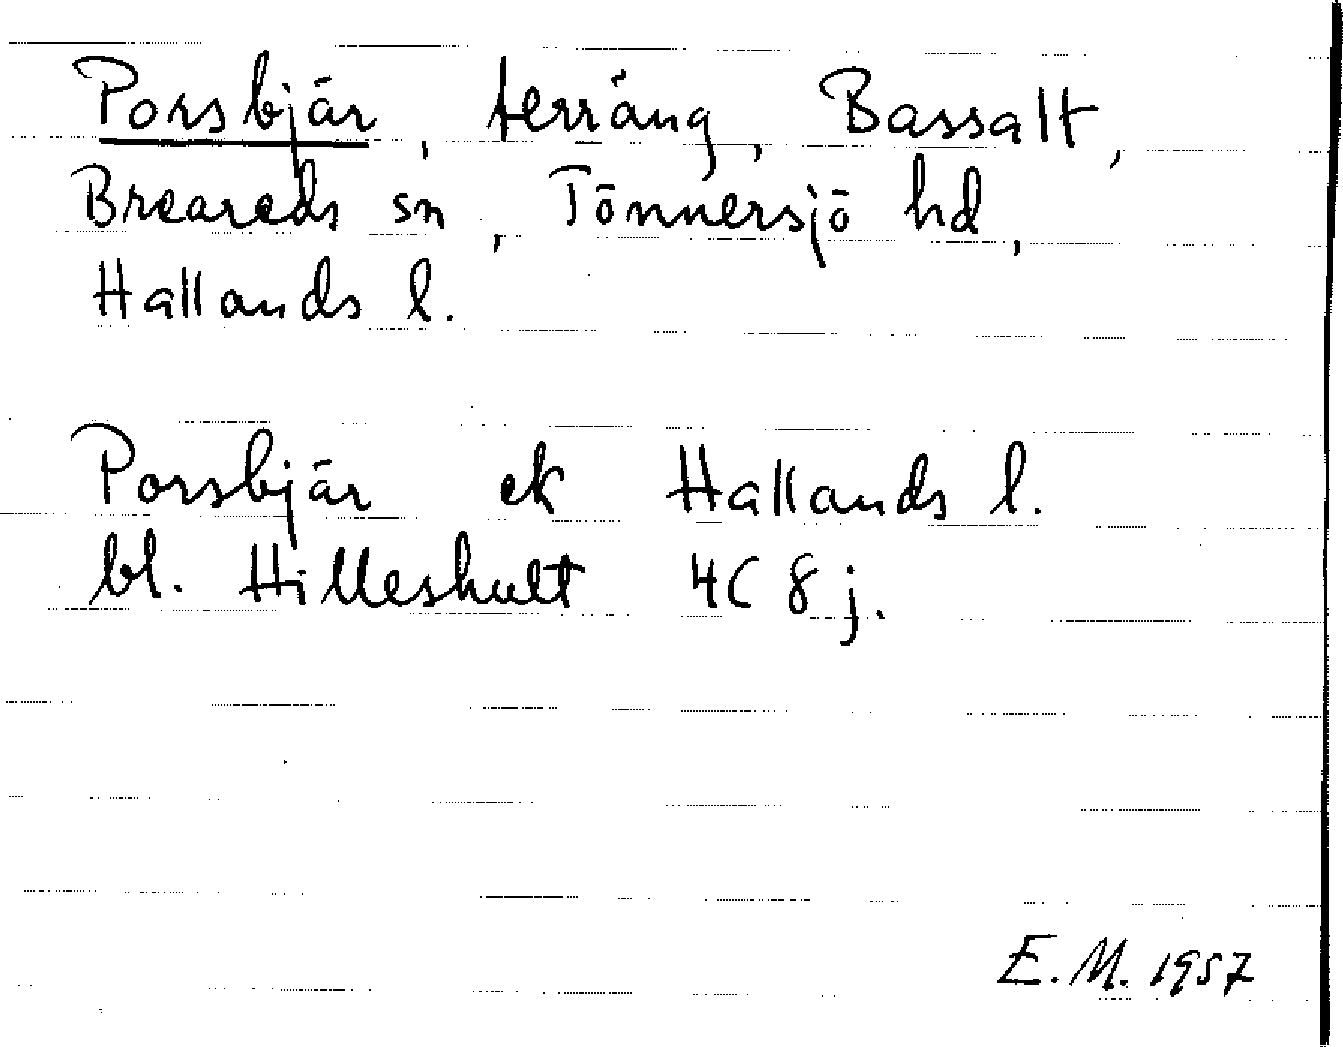 Porsbjär, terräng, Bassalt,
Breareds sn, Tönnersjö hd,
Hallands l.
Porsbjär ek Hallands l.
bl. Hilleshult 4C 8 j.
E.M. 1957